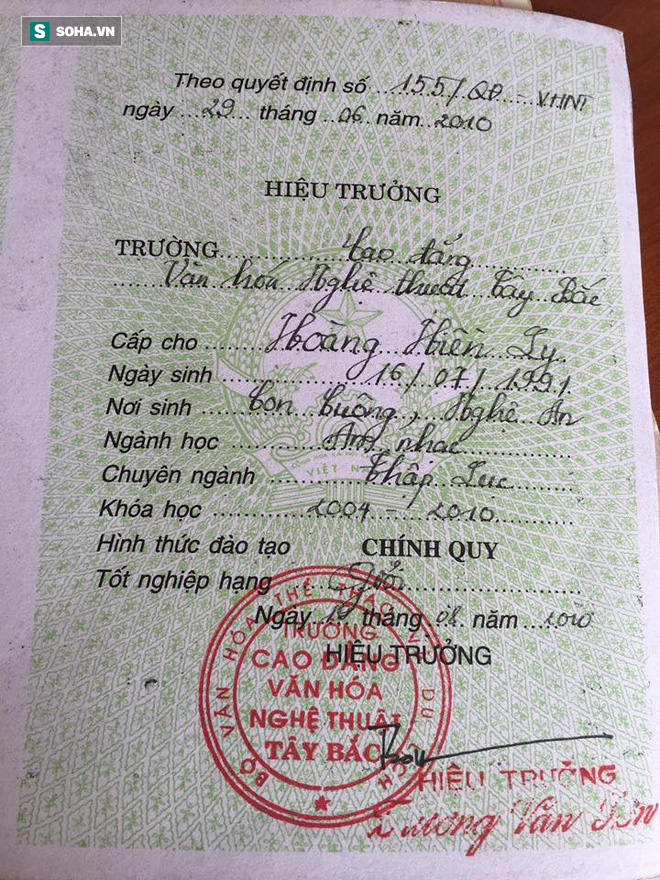 S SOHA.VN
Theo quyết định số ...155/QĐ - VHNT
ngày ...29... tháng ..06.. năm..2010
HIỆU TRƯỞNG
TRƯỜNG........Cao đẳng
Văn hóa Nghệ thuật Tây Bắc
Cấp cho ........Hoàng Hiền Ly
Ngày sinh ........16/07/1991
Nơi sinh ...Con Cuông, Nghệ An
Ngành học ........Âm nhạc
Chuyên ngành ........Thập Lục
Khóa học ........2004 - 2010
Hình thức đào tạo CHÍNH QUY
Tốt nghiệp hạng ....Giỏi
Ngày tháng .08. năm ...2010
HIỆU TRƯỞNG
BỘ VĂN HÓA THỂ THAO VÀ DU LỊCH
TRƯỜNG
CAO ĐẲNG
VĂN HÓA
NGHỆ THUẬT
TÂY BẮC
HIỆU TRƯỞNG
Trương Văn Sơn
VIỆT NAM